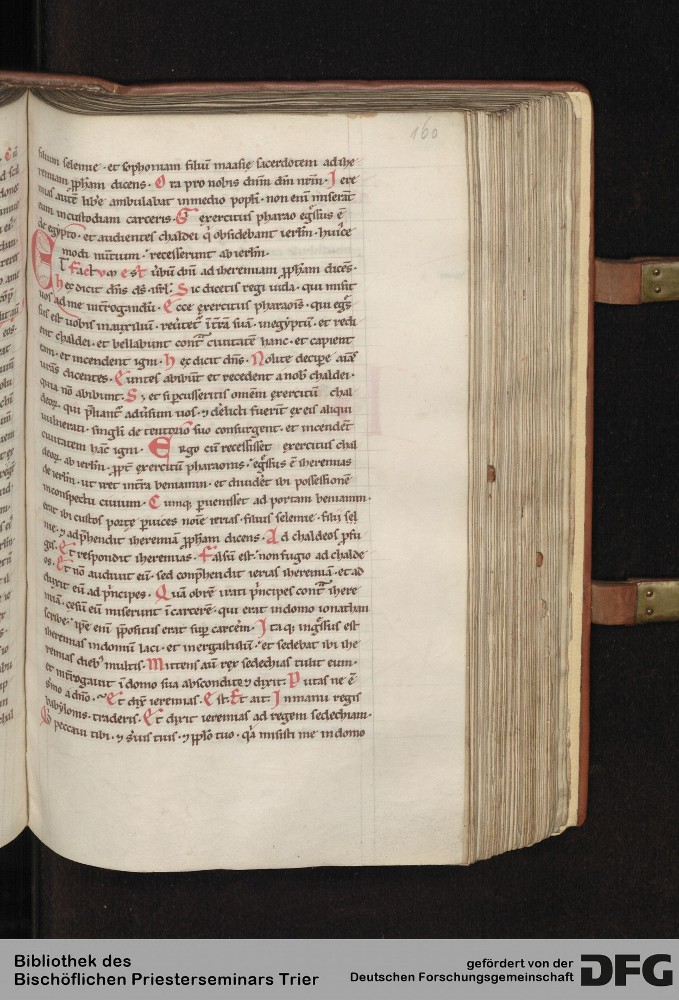 160
filium selemie · et sophoniam filiū maasie sacerdotem ad ihe
remiam ꝓphām dicens · Ora pro nobis dnm̄ dm̄ nrm̄ · Iere
mias autē libe ambulabat inmedio popli · non enī miserāt
eum incustodiam carceris · exercitus pharao egssus ē
de egypto · et audientes chaldei qi obsidebant ierlm̄ · huice
modi nuntium · recesserunt ab ierlm̄ ·
Et factum est ūbū dnī ad iheremiam ꝓphām dicēs ·
hec dicit dn̄s ds̄ isrl̄ · Sic dicetis regi iuda · qui misit
uos ad me introgandū · Ecce exercitus pharaois · qui egs
sus est uobis inauxiliū · reūtet i trā suā · inegyptū · et redi
ent chaldei · et bellabunt cont ciuitatē hanc · et capient
eam · et incendent igni · hec dicit dn̄s · Nolite decipe aīe
uras dicentes · Euntes abibūt et recedent a nob chaldei ·
quia nō abibunt · S; et si percusseritis omēm exercitū chal
deoꝝ · qui pliant aduersum uos · ⁊ derelicti fuerīt ex eis aliqui
uulnerati · singli de tentorio suo consurgent · et incendēt
ciuitatem hac̄ igni · Ergo cū recessisset exercitus chal
deoꝝ ab ierlm̄ · ꝓpt exercitū pharaonis · egssus ē iheremias
de ierlm̄ · ut iret intra beniamin · et diuidēt ibi possessionē
inconspectu ciuium · Cumq; puenisset ad portam beniamin ·
erat ibi custos porte puices noīe ierias · filius selemie · filii sel
mie · ⁊ adphendit iheremiā ꝓphām dicens · Ad chaldeos ꝓfu
gis · Et respondit iheremias · Falsū est · non fugio ad chalde
os · Et nō audiuit eū · sed conphendit ierias iheremiā · et ad
duxit eū ad pincipes · Quā obrē irati pincipes conta ihere
miā · cesū eū miserunt i carcerē · qui erat indomo ionathan
scribe · ipe enī ppositus erat sup carcēm · Itaq; ingssus est
iheremias indomū laci · et inergastulū · et sedebat ibi ihe
remias dieb; multis · Mittens aū rex sedechias tulit eum ·
et introgauit i domo sua abscondite ⁊ dixit · Putas ne ē
smo a dn̄o · Et dix ieremias · Est · Et ait · Inmanu regis
babylonis · traderis · Et dixit ieremias ad regem sedechiam ·
Qd peccaui tibi · ⁊ suis tuis · ⁊ pplo tuo · qa misisti me indomo
Bibliothek des
Bischöflichen Priesterseminars Trier
gefördert von der
Deutschen Forschungsgemeinschaft
DFG